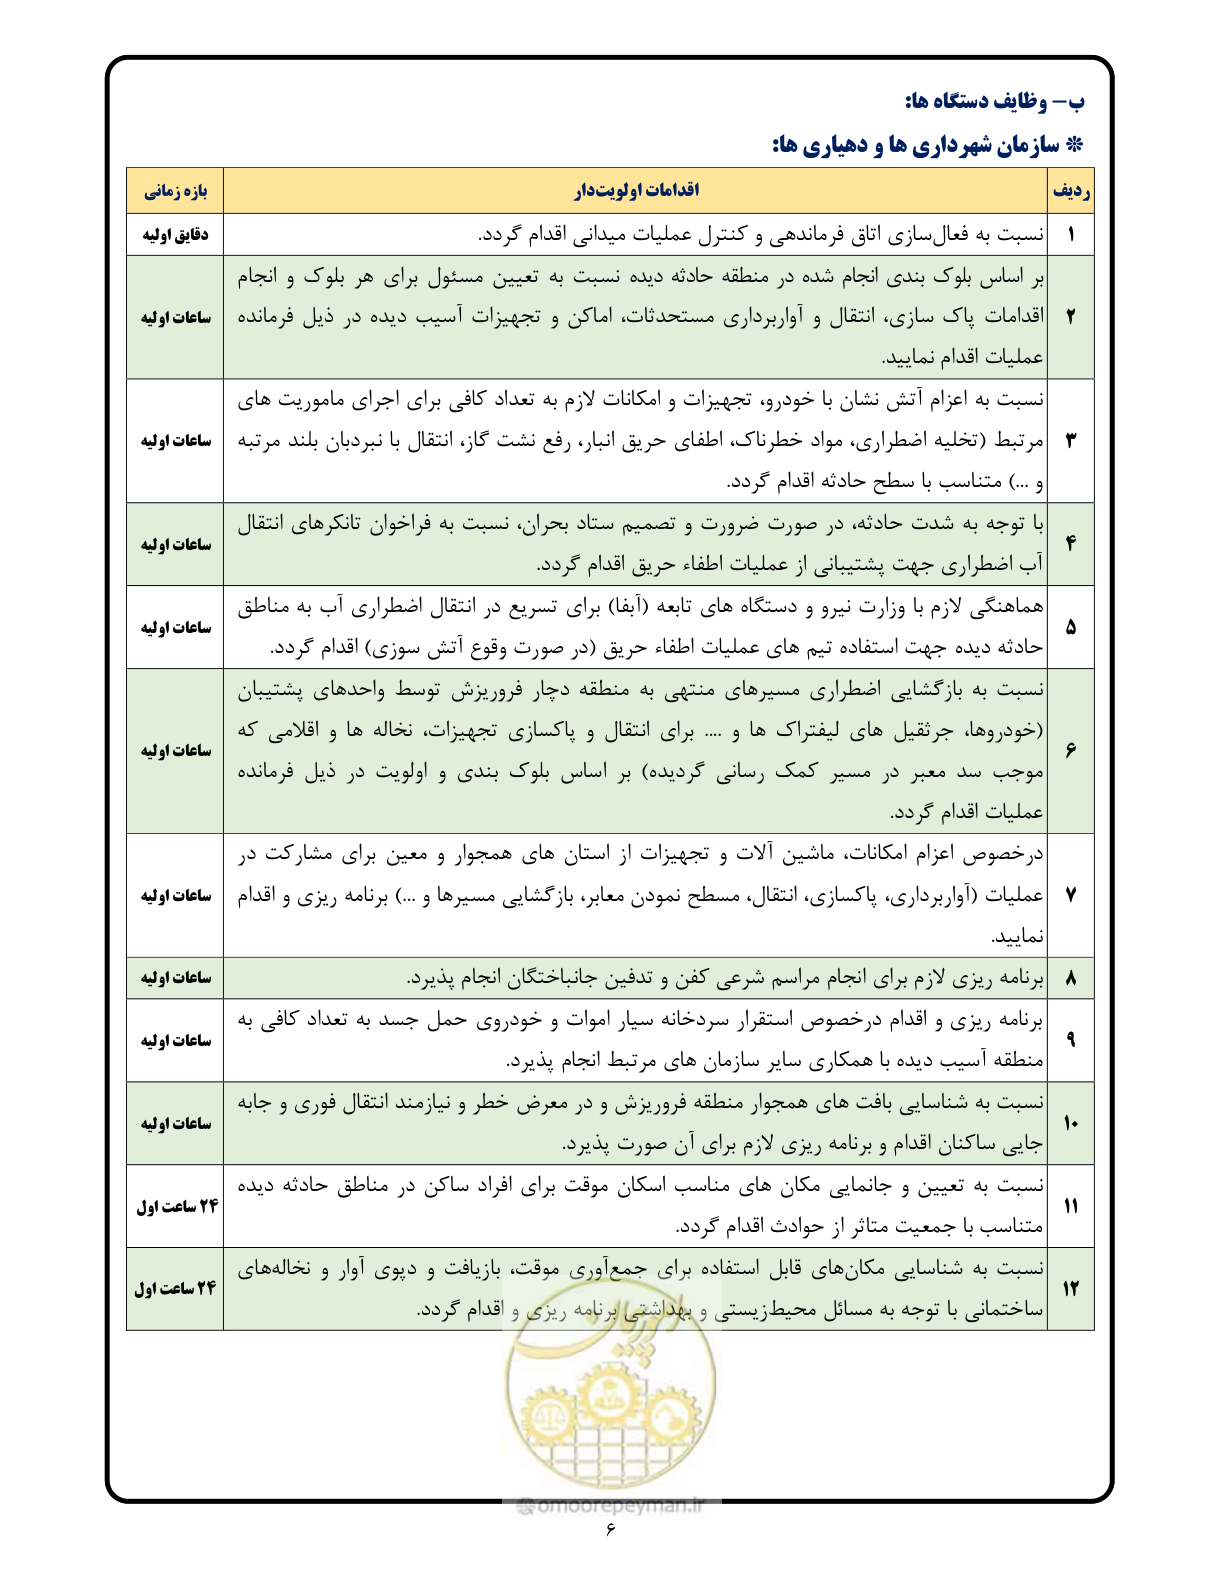 ب- وظایف دستگاه ها:
* سازمان شهرداری ها و دهیاری ها:
ردیف اقدامات اولویت‌دار بازه زمانی
۱ نسبت به فعال‌سازی اتاق فرماندهی و کنترل عملیات میدانی اقدام گردد. دقایق اولیه
بر اساس بلوک بندی انجام شده در منطقه حادثه دیده نسبت به تعیین مسئول برای هر بلوک و انجام
۲ اقدامات پاک سازی، انتقال و آواربرداری مستحدثات، اماکن و تجهیزات آسیب دیده در ذیل فرمانده ساعات اولیه
عملیات اقدام نمایید.
نسبت به اعزام آتش نشان با خودرو، تجهیزات و امکانات لازم به تعداد کافی برای اجرای ماموریت های
۳ مرتبط (تخلیه اضطراری، مواد خطرناک، اطفای حریق انبار، رفع نشت گاز، انتقال با نبردبان بلند مرتبه ساعات اولیه
و ...) متناسب با سطح حادثه اقدام گردد.
با توجه به شدت حادثه، در صورت ضرورت و تصمیم ستاد بحران، نسبت به فراخوان تانکرهای انتقال
۴ آب اضطراری جهت پشتیبانی از عملیات اطفاء حریق اقدام گردد. ساعات اولیه
هماهنگی لازم با وزارت نیرو و دستگاه های تابعه (آبفا) برای تسریع در انتقال اضطراری آب به مناطق
۵ حادثه دیده جهت استفاده تیم های عملیات اطفاء حریق (در صورت وقوع آتش سوزی) اقدام گردد. ساعات اولیه
نسبت به بازگشایی اضطراری مسیرهای منتهی به منطقه دچار فروریزش توسط واحدهای پشتیبان
(خودروها، جرثقیل های لیفتراک ها و .... برای انتقال و پاکسازی تجهیزات، نخاله ها و اقلامی که
۶ موجب سد معبر در مسیر کمک رسانی گردیده) بر اساس بلوک بندی و اولویت در ذیل فرمانده ساعات اولیه
عملیات اقدام گردد.
درخصوص اعزام امکانات، ماشین آلات و تجهیزات از استان های همجوار و معین برای مشارکت در
۷ عملیات (آواربرداری، پاکسازی، انتقال، مسطح نمودن معابر، بازگشایی مسیرها و ...) برنامه ریزی و اقدام ساعات اولیه
نمایید.
۸ برنامه ریزی لازم برای انجام مراسم شرعی کفن و تدفین جانباختگان انجام پذیرد. ساعات اولیه
برنامه ریزی و اقدام درخصوص استقرار سردخانه سیار اموات و خودروی حمل جسد به تعداد کافی به
۹ منطقه آسیب دیده با همکاری سایر سازمان های مرتبط انجام پذیرد. ساعات اولیه
نسبت به شناسایی بافت های همجوار منطقه فروریزش و در معرض خطر و نیازمند انتقال فوری و جابه
۱۰ جایی ساکنان اقدام و برنامه ریزی لازم برای آن صورت پذیرد. ساعات اولیه
نسبت به تعیین و جانمایی مکان های مناسب اسکان موقت برای افراد ساکن در مناطق حادثه دیده
۱۱ متناسب با جمعیت متاثر از حوادث اقدام گردد. ۲۴ ساعت اول
نسبت به شناسایی مکان‌های قابل استفاده برای جمع‌آوری موقت، بازیافت و دپوی آوار و نخاله‌های
۱۲ ساختمانی با توجه به مسائل محیط‌زیستی و بهداشتی برنامه ریزی و اقدام گردد. ۲۴ ساعت اول
امورپیمان
@omoorepeyman.ir
۶